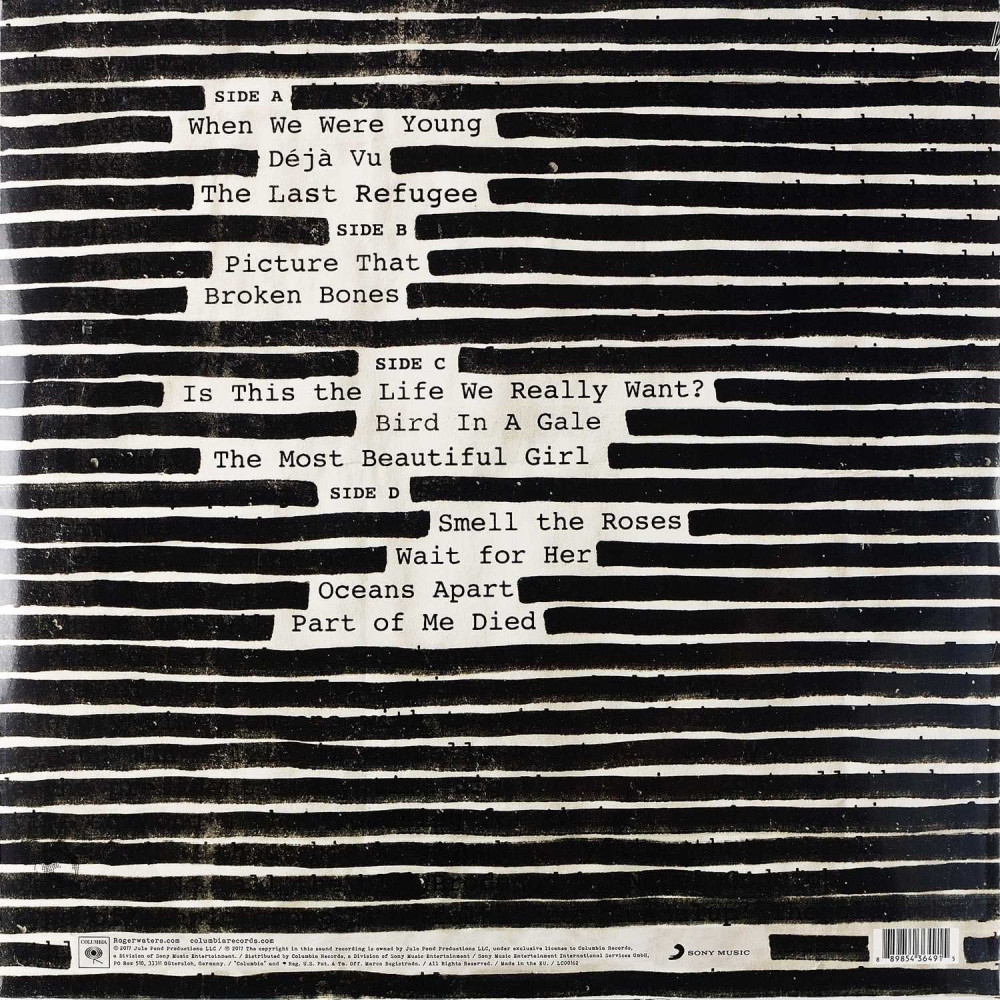 SIDE A
When We Were Young
Déjà Vu
The Last Refugee
SIDE B
Picture That
Broken Bones
SIDE C
Is This the Life We Really Want?
Bird In A Gale
The Most Beautiful Girl
SIDE D
Smell the Roses
Wait for Her
Oceans Apart
Part of Me Died
COLUMBIA
Rogerwaters.com columbiarecords.com
© 2017 Jule Pond Productions LLC / ℗ 2017 The copyright in this sound recording is owned by Jule Pond Productions LLC, under exclusive license to Columbia Records,
a Division of Sony Music Entertainment. / Distributed by Columbia Records, a Division of Sony Music Entertainment / Sony Music Entertainment International Services GmbH,
PO Box 510, 33311 Gütersloh, Germany / "Columbia" and Reg. U.S. Pat. & Tm. Off. Marca Registrada. / All Rights Reserved. / Made in the EU. / LC00162
SONY MUSIC
8 89854 36491 5